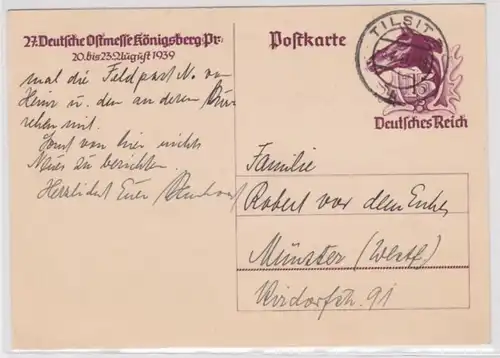 27. Deutsche Ostmesse Königsberg-Pr.
20. bis 23. August 1939
mal die Feldpost N. von
Heinz u. den anderen
mit.
Sonst von hier nichts
Neues zu berichten
Herzlichst Euer
Postkarte
TILSIT
Deutsches Reich
Familie
Robert vor dem
Münster (Westf)
91